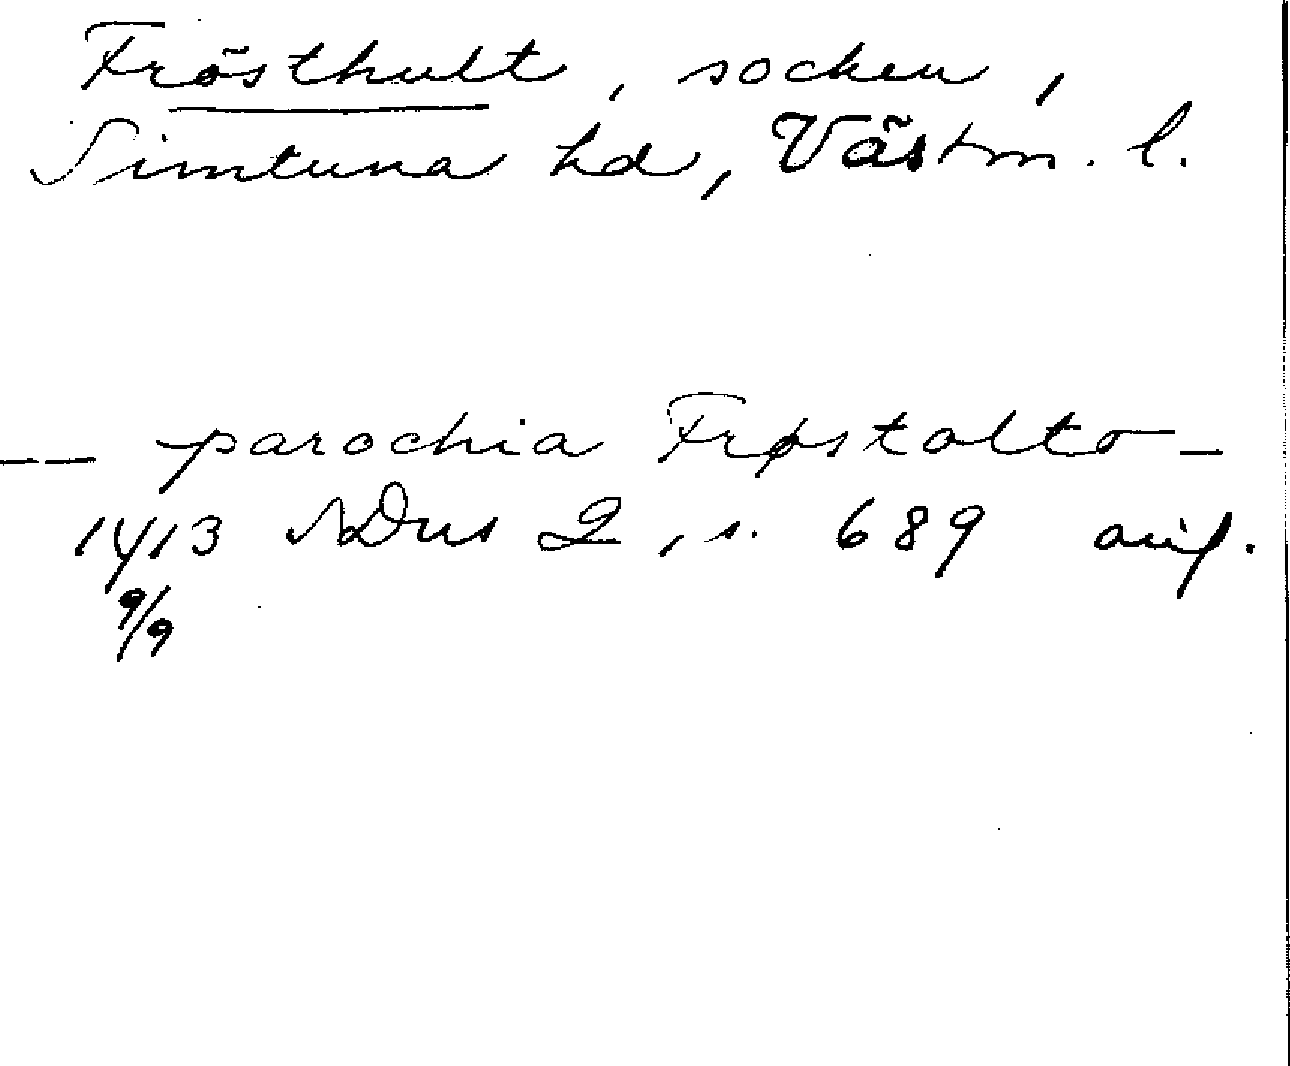 Frösthult, socken,
Simtuna hd, Västm. l.
-- parochia Frøstolto -
1413 SDns 2, s. 689 avif.
9/9